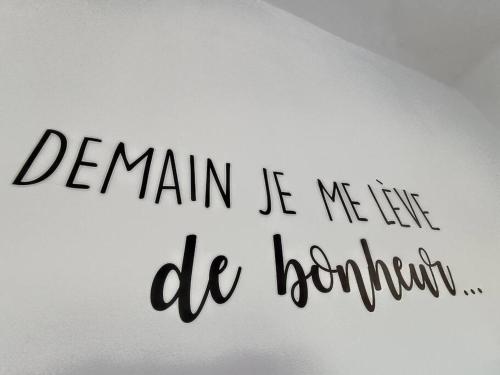 DEMAIN JE ME LÈVE
de bonheur...